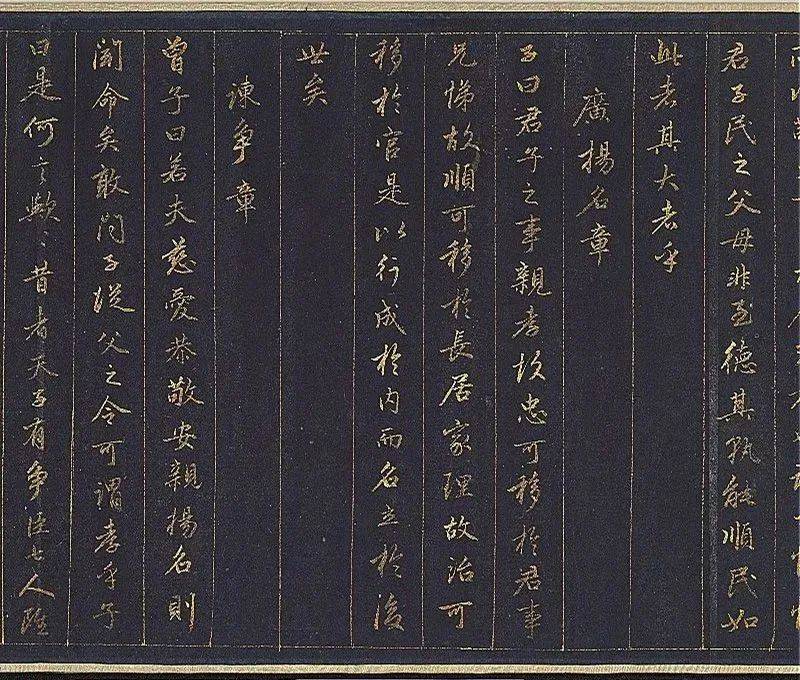 君子民之父母非至德其孰能順民如
此者其大者乎
廣揚名章
子曰君子之事親孝故忠可移於君事
兄悌故順可移於長居家理故治可
移於官是以行成於內而名立於後
世矣
諫爭章
曾子曰若夫慈愛恭敬安親揚名則
聞命矣敢問子從父之令可謂孝乎子
曰是何言歟〻昔者天子有爭臣七人雖